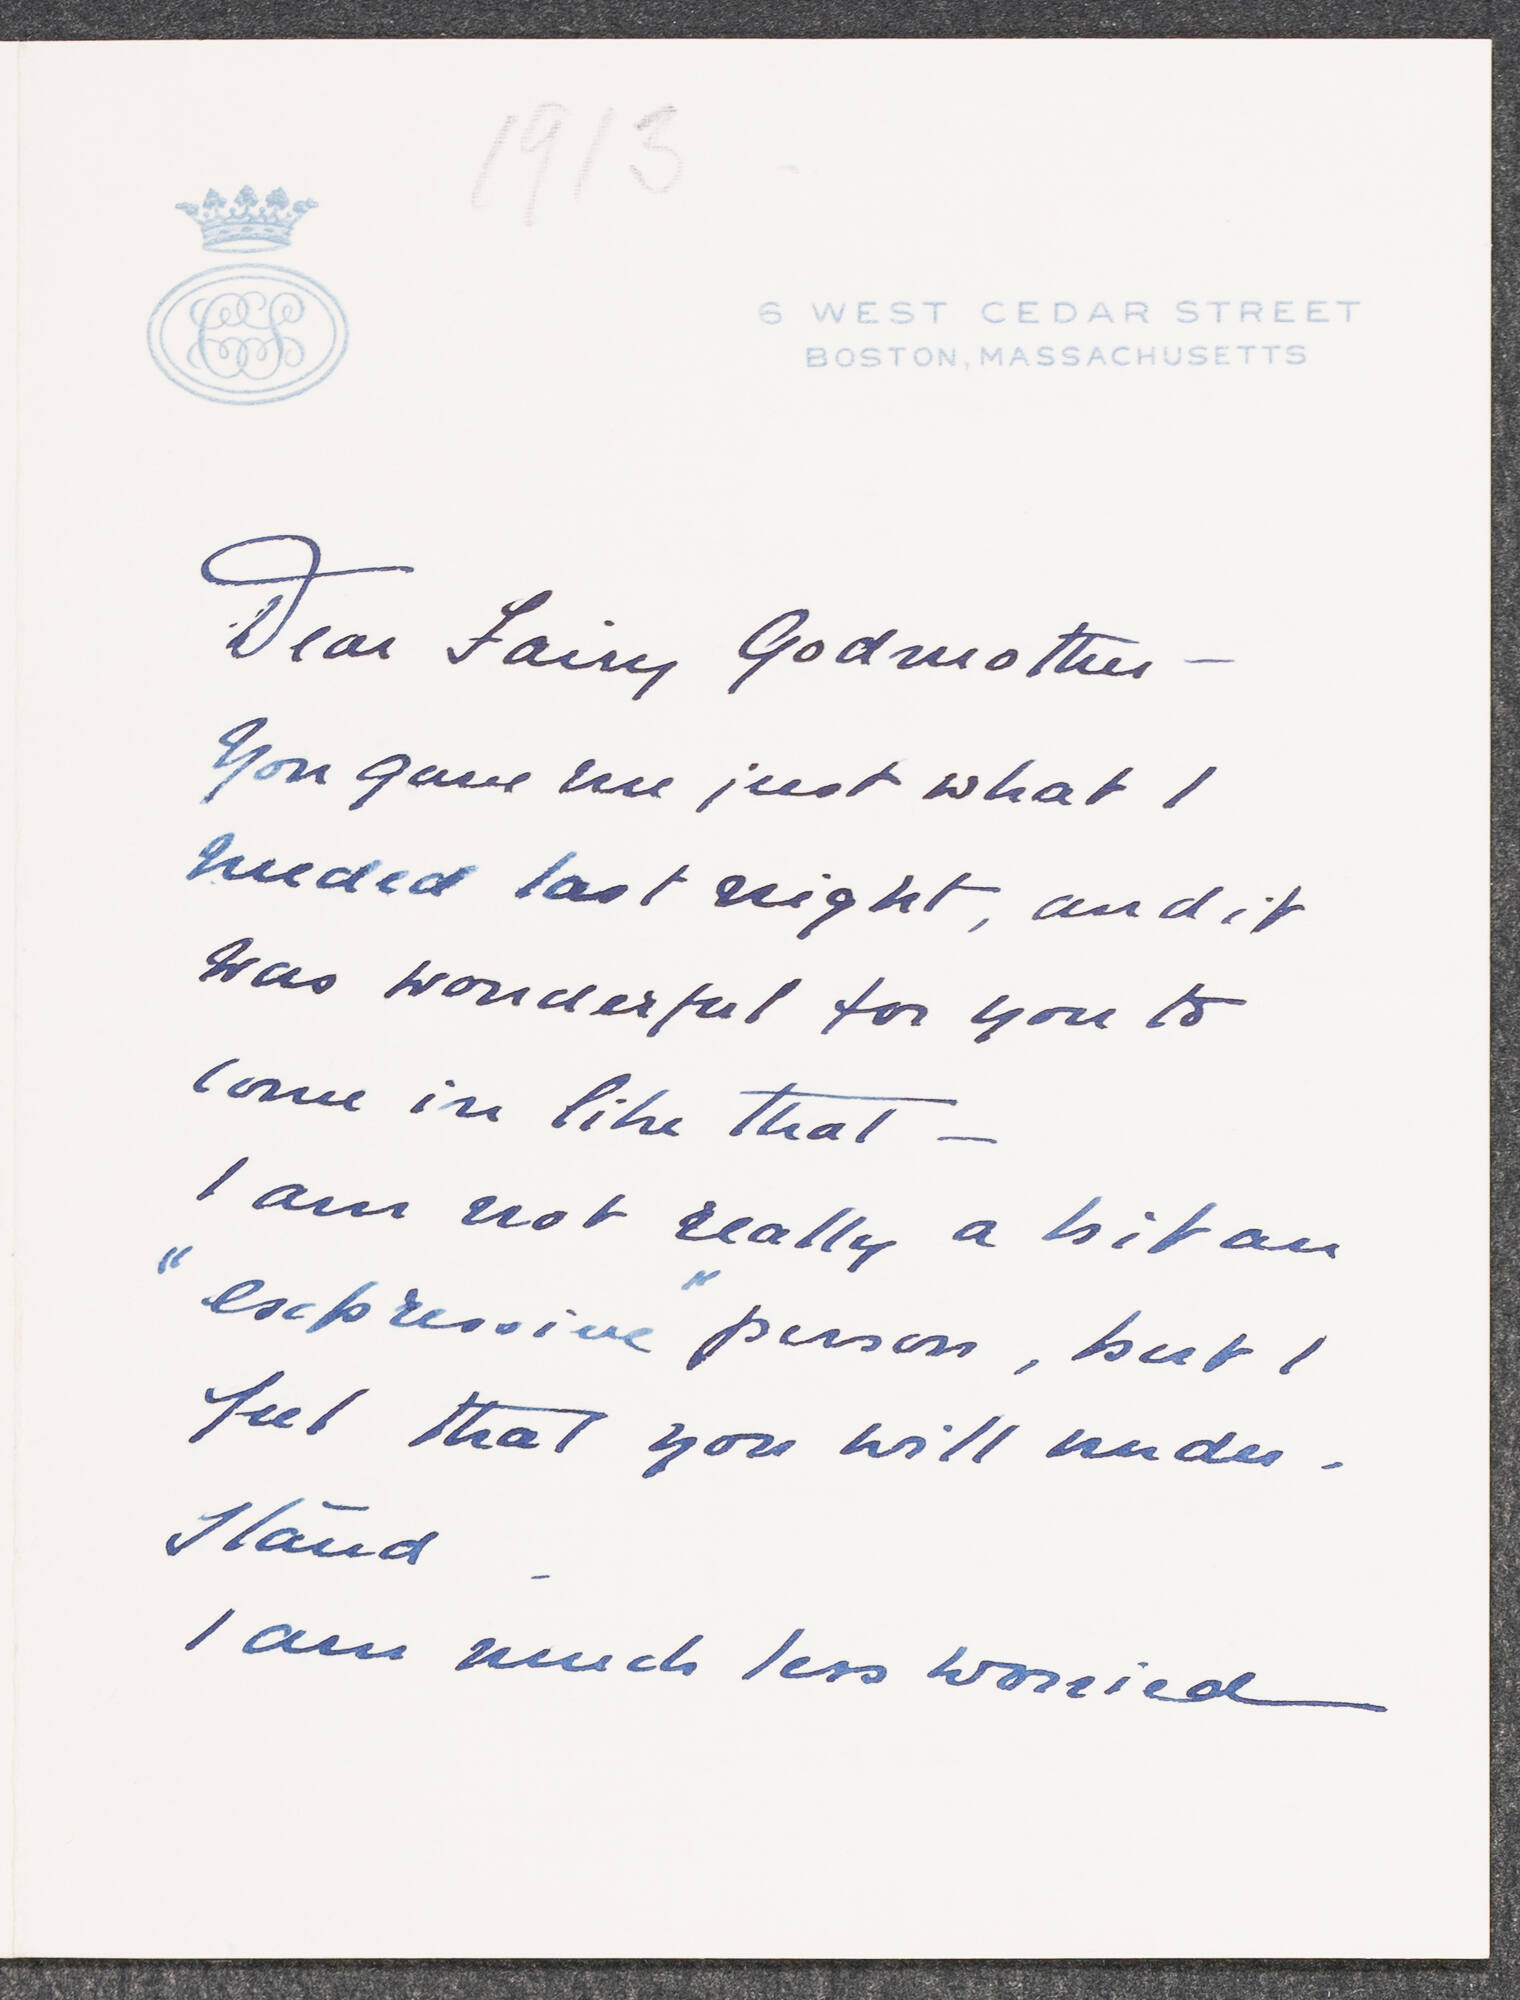 1913
6 WEST CEDAR STREET
BOSTON, MASSACHUSETTS
Dear Fairy Godmother —
You gave me just what I
needed last night, and it
was wonderful for you to
come in like that —
I am not really a bit an
"expressive" person, but I
feel that you will under -
stand -
I am much less worried